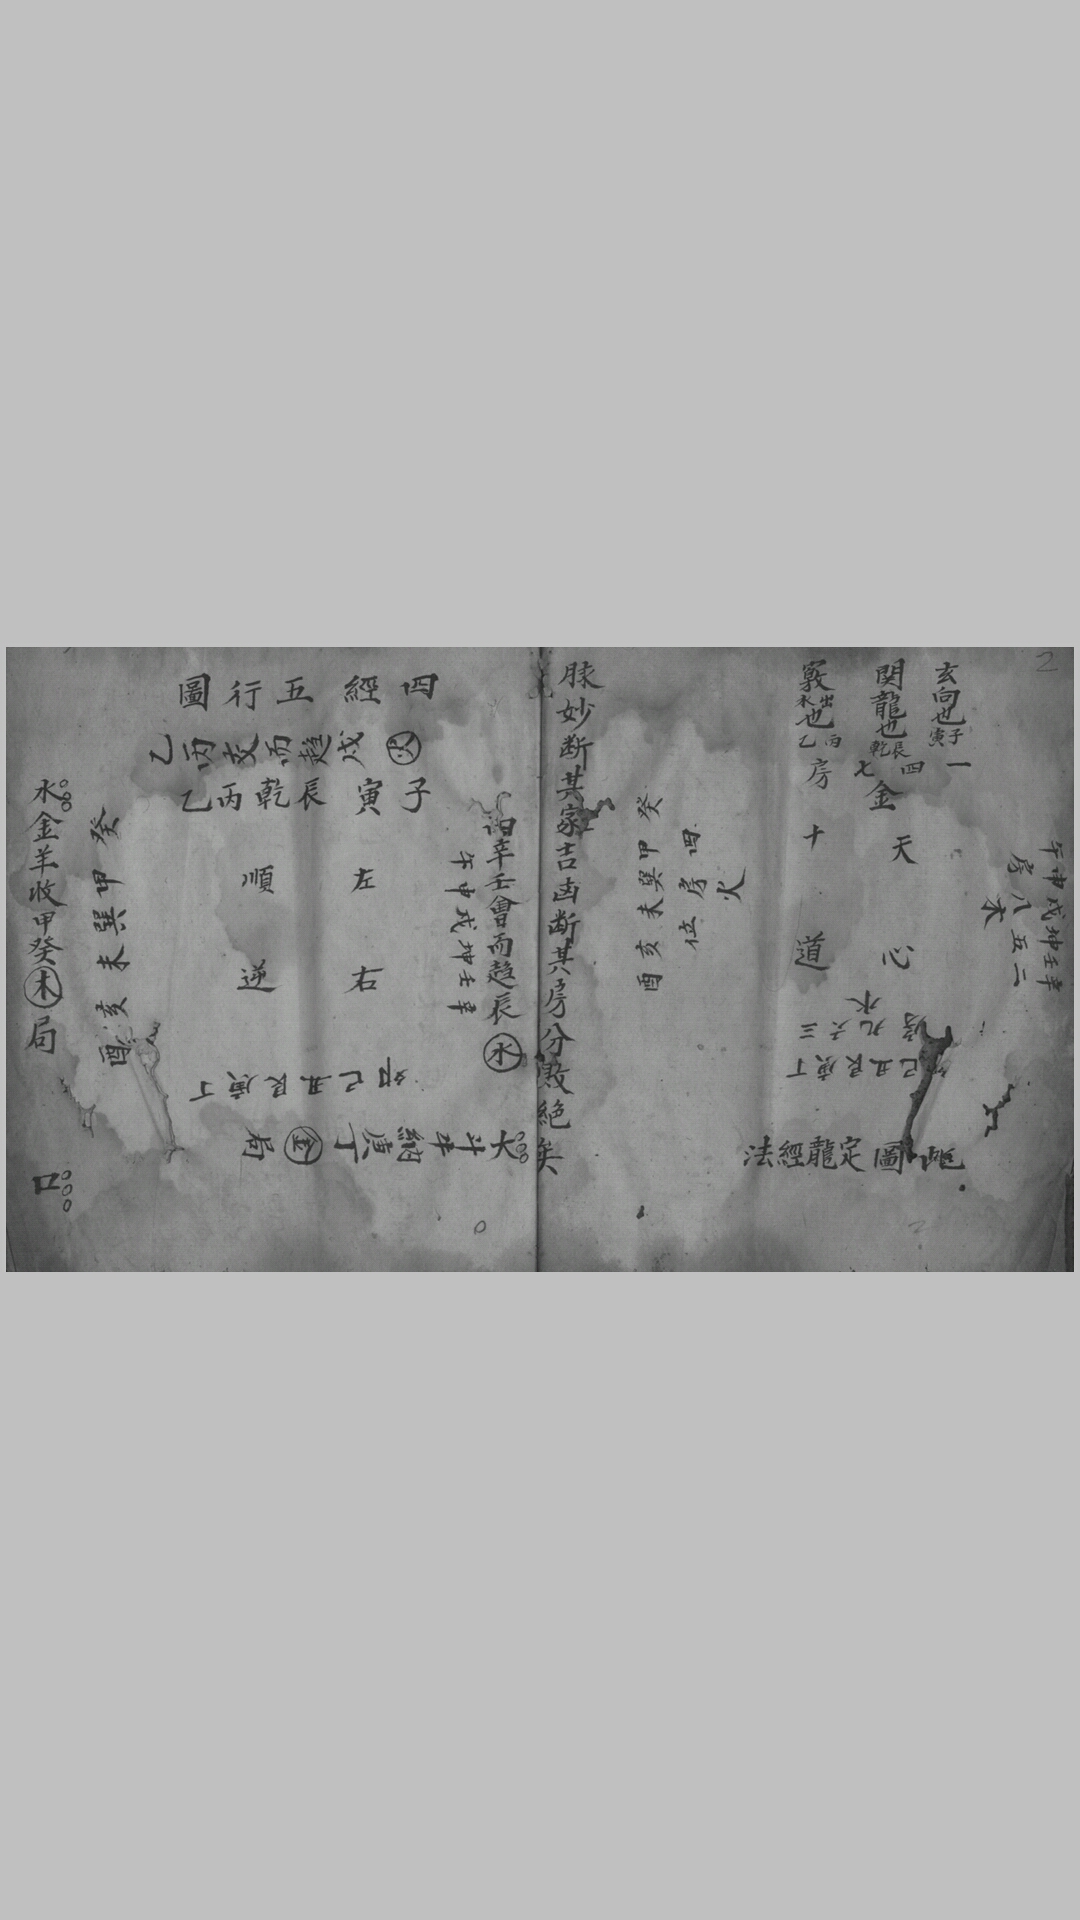 玄向也子寅
関龍也辰乾
竅也出水丙乙
一四七
房十
金
午申戌坤壬辛
房八五二
木
天心
十道
水
房九六三
己丑艮庚丁
此圖定龍經法
火
四房位
癸甲巽未亥酉
脉妙断其家吉凶断其房分敗絕矣
四經五行圖
火
乙丙交而趨戌
子寅辰乾丙乙
辛壬會而趨辰水
午申戌坤壬辛
左右
順逆
卯己丑艮庚丁
大斗牛納庚丁金局
癸甲巽未亥酉
水金羊收甲癸木局
口